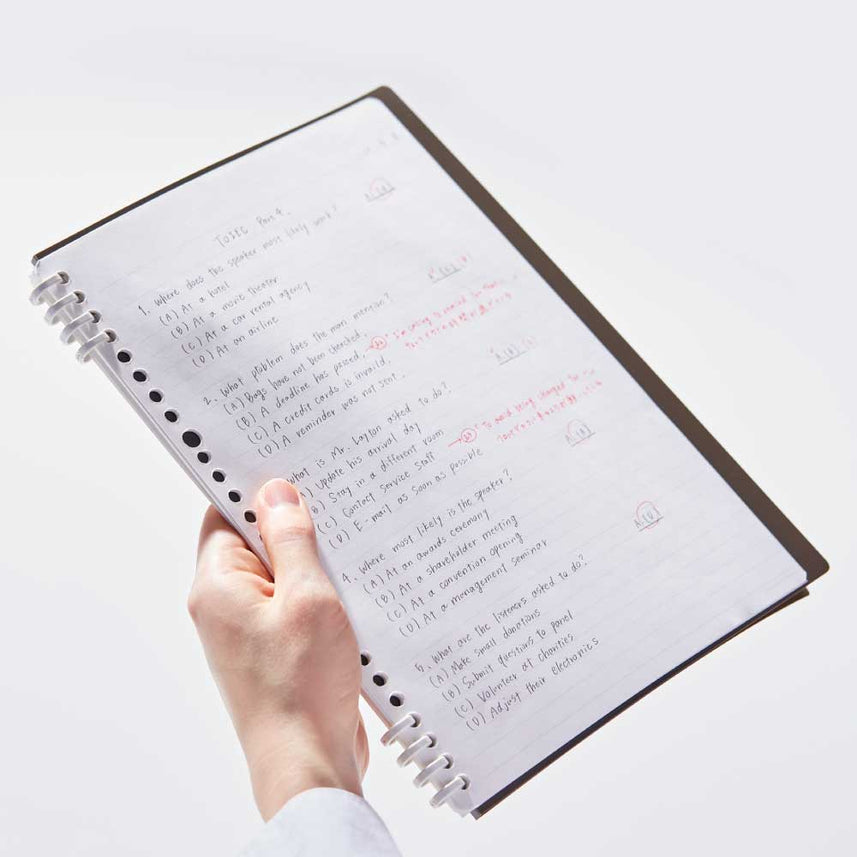 TOEIC Part 4.
1. Where does the speaker most likely work?
(A) At a hotel
(B) At a movie theater
(C) At a car rental agency
(D) At an airline
2. What problem does the man mention?
(A) Bags have not been checked.
(B) A deadline has passed.
(C) A credit cards is invalid.
(D) A reminder was not sent.
What is Mr. Layton asked to do?
Update his arrival day
Stay in a different room
(C) Contact Service Staff
(D) E-mail as soon as possible
4. Where most likely is the speaker?
(A) At an awards ceremony
(B) At a shareholder meeting
(C) At a convention opening
(D) At a management seminar
5. What are the listeners asked to do?
(A) Make small donations
(B) Submit questions to panel
(C) Volunteer at charities
(D) Adjust their electronics
To avoid being charged